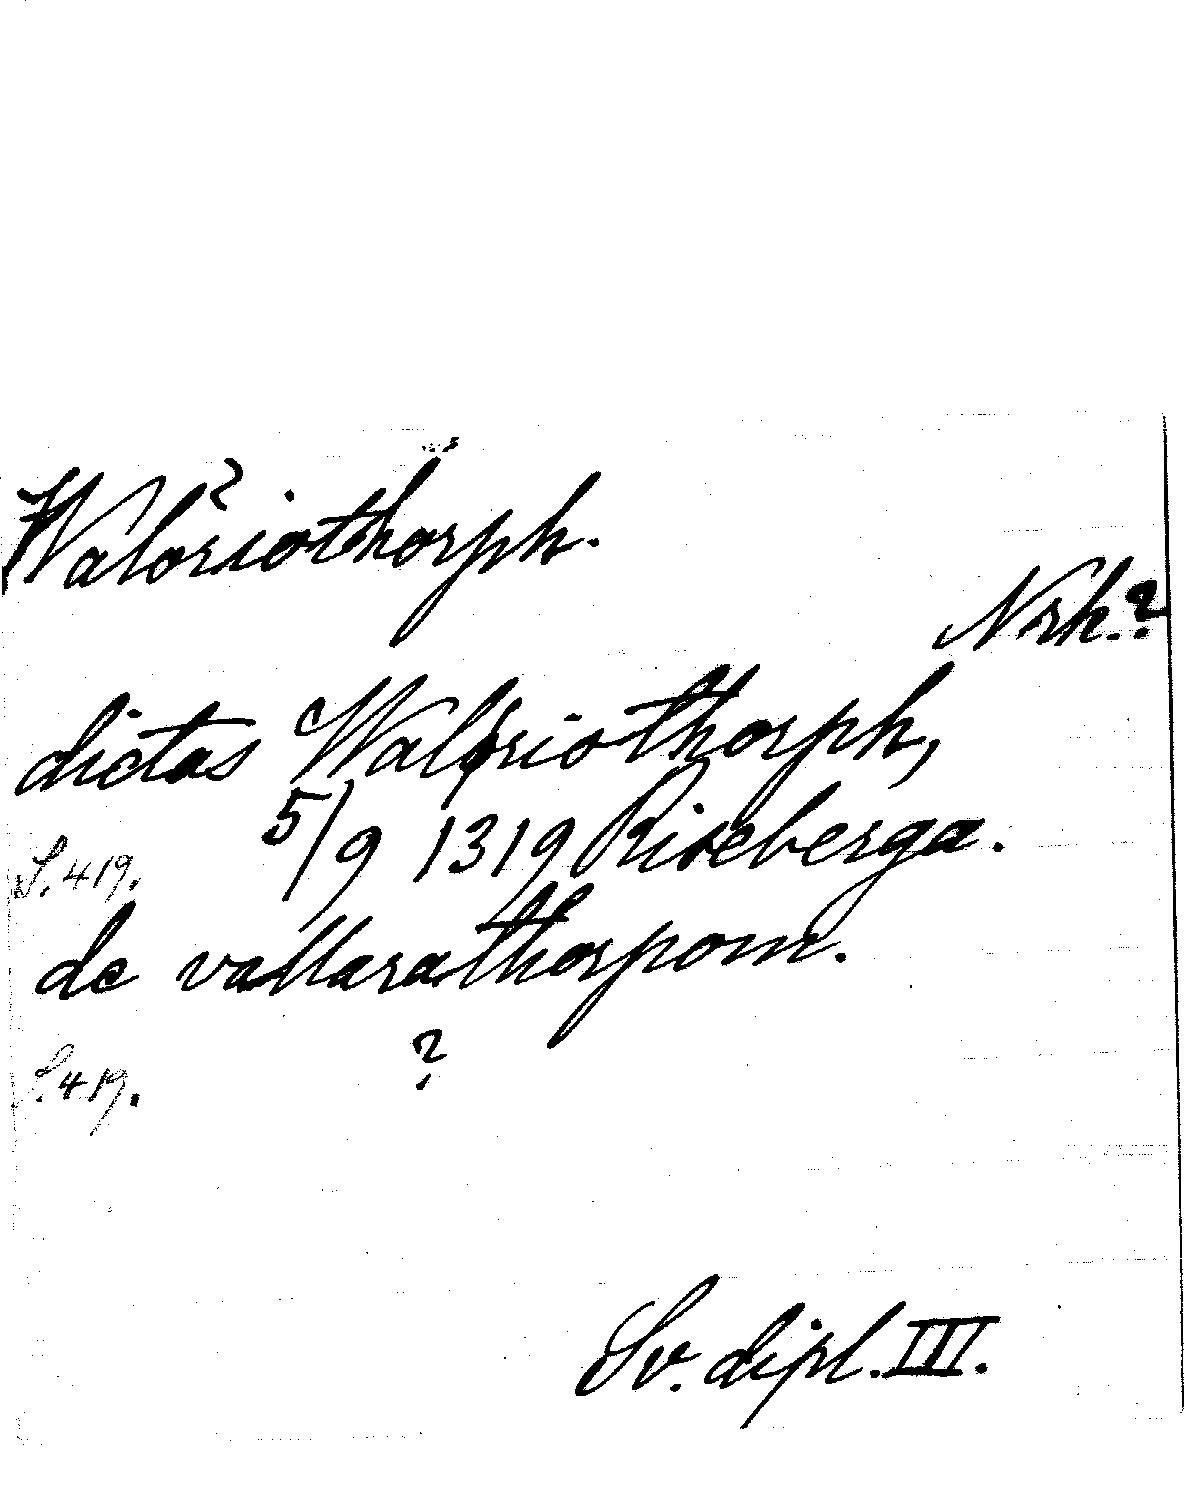 ?
Waloriothorph.
Nrk.?
dictas Waloriothorph,
5/9 1319 Riseberga.
S. 419.
de vallarathorpom.
?
S. 419.
Sv. dipl. III.